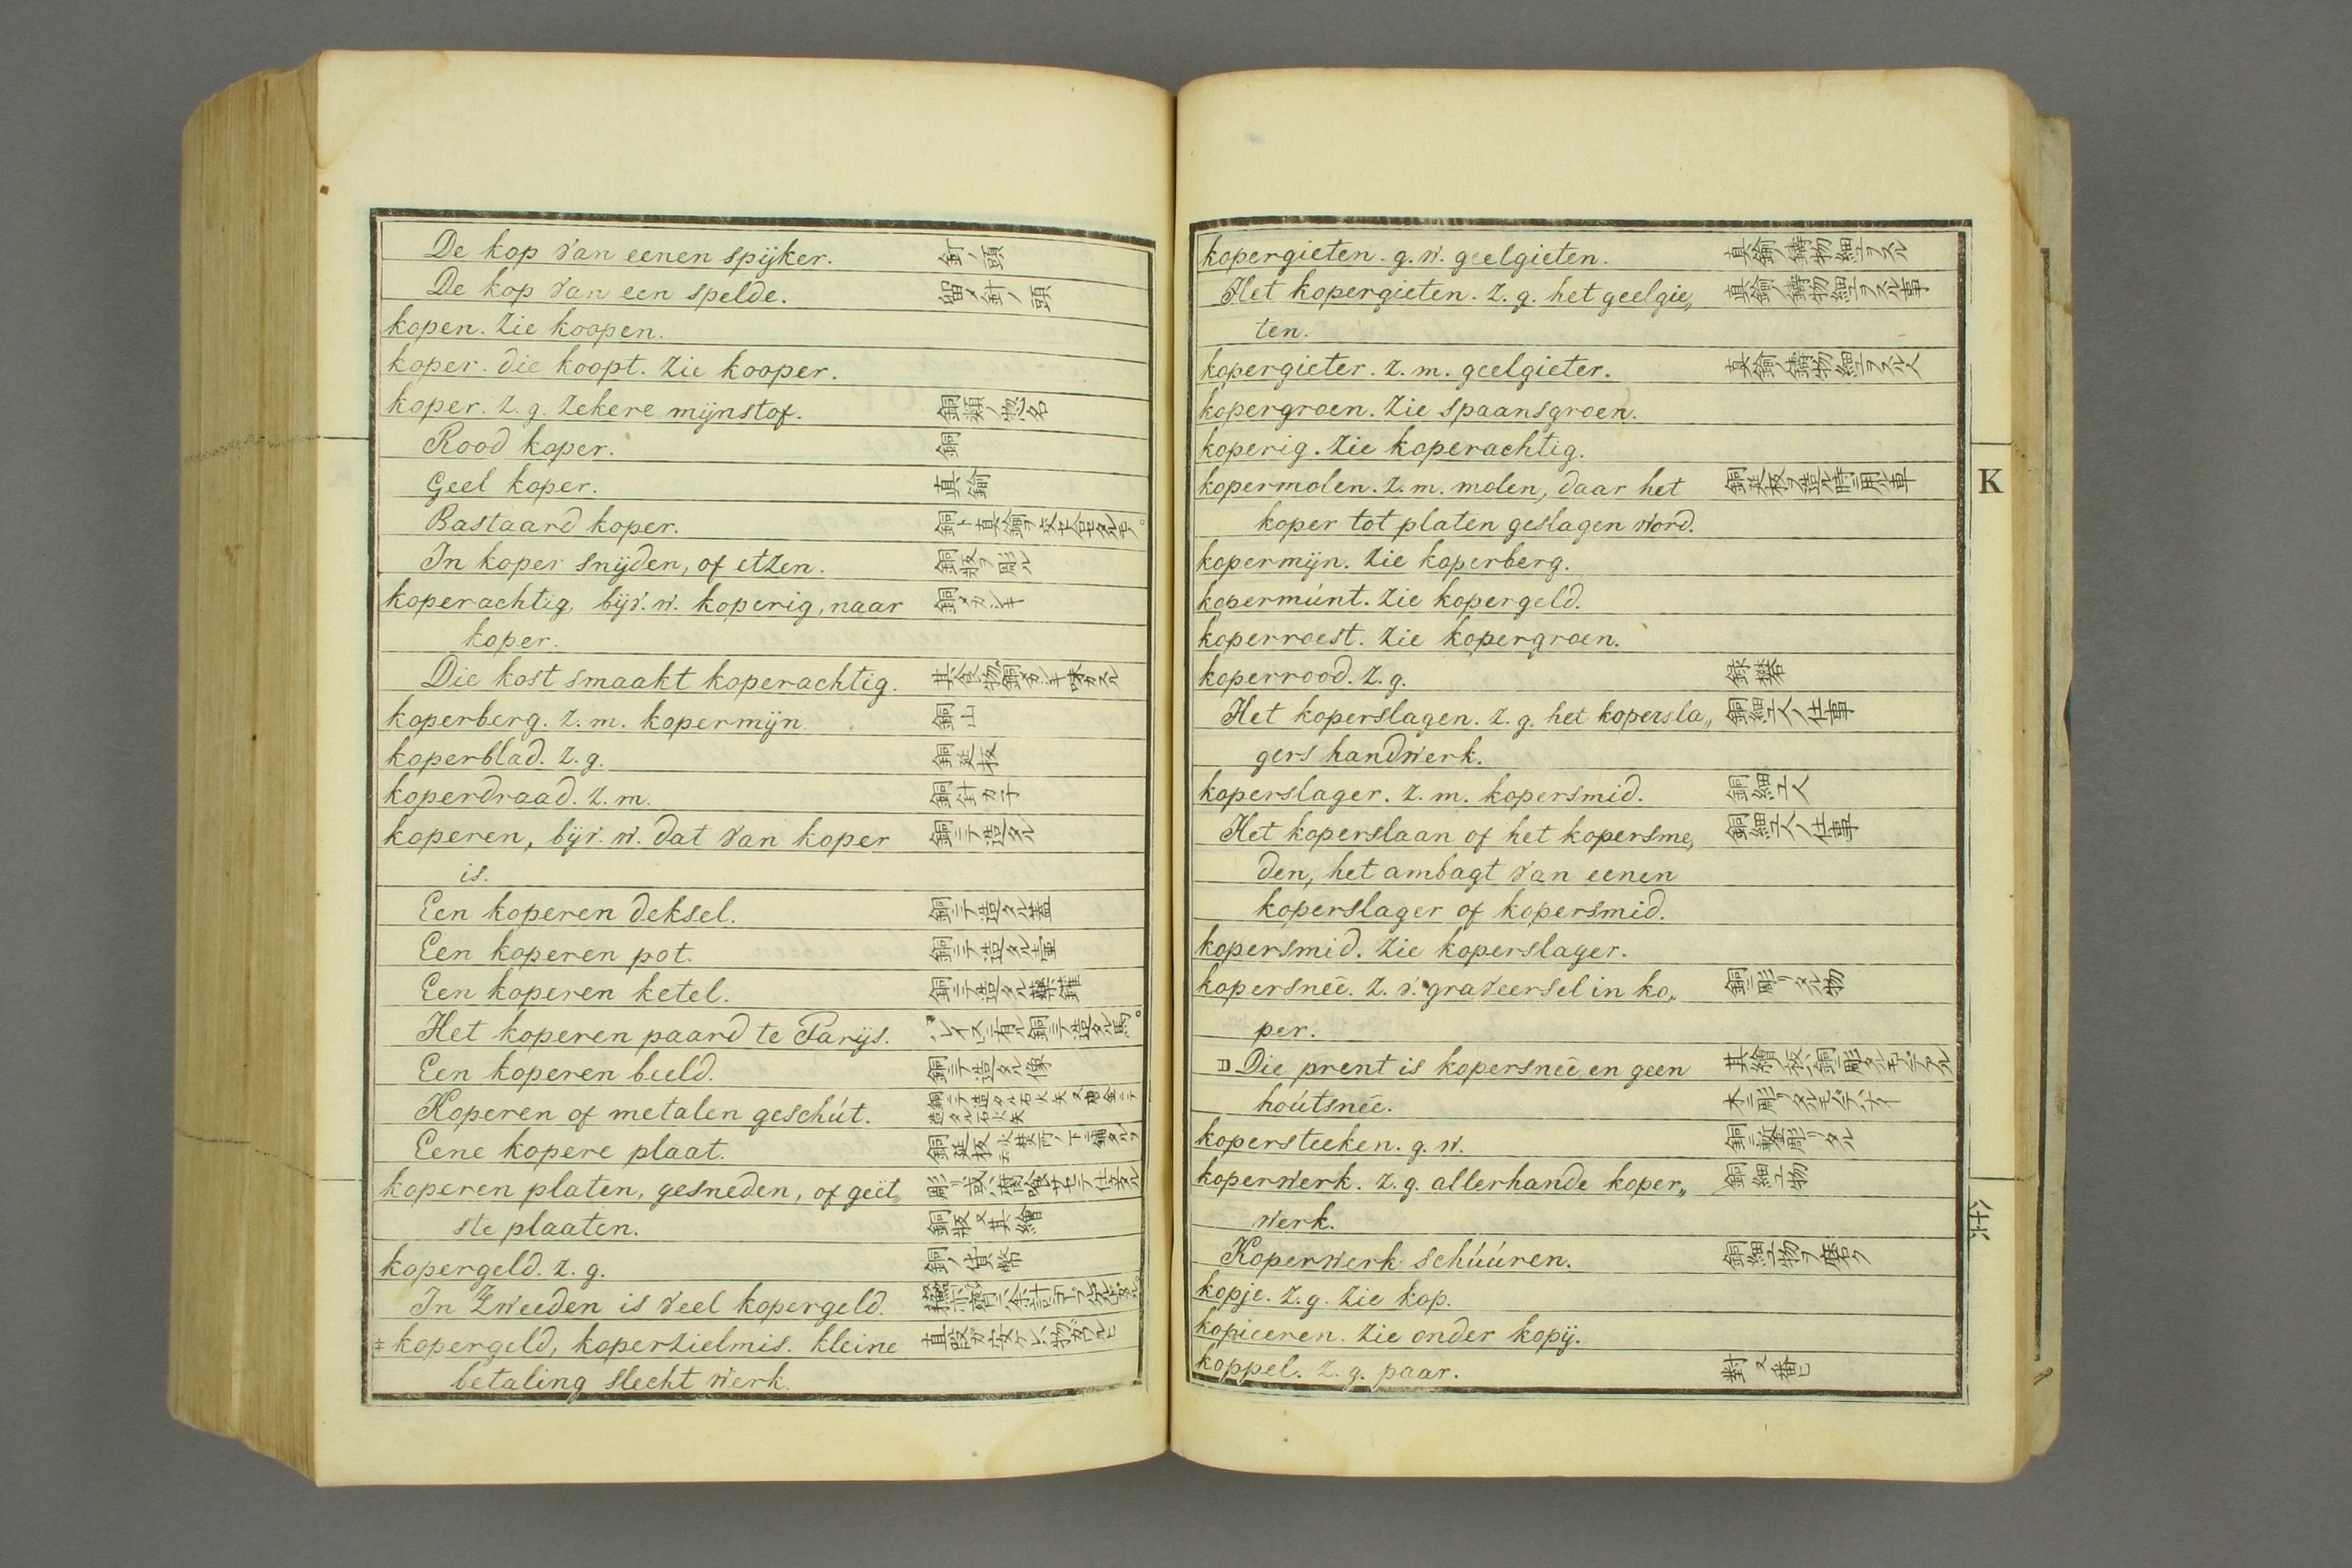 De kop van eenen spijker. 釘ノ頭
De kop van een spelde. 留メ針ノ頭
kopen. zie koopen.
koper. die koopt. zie kooper.
koper. z. g. zekere mijnstof. 銅類ノ惣名
Rood koper. 銅
Geel koper. 真鍮
Bastaard koper. 銅ト真鍮ヲ交セ合セタルモノ
In koper snijden, of etzen. 銅板ヲ彫ル
koperachtig, bijv. w. koperig, naar 銅メカシキ
koper.
Die kost smaakt koperachtig. 其食物ガ銅メカシキ味カスル
koperberg. z. m. kopermijn. 銅山
koperblad. z. g. 銅延板
koperdraad. z. m. 銅針カ子
koperen, bijv. w. dat van koper 銅ニテ造タル
is.
Een koperen deksel. 銅ニテ造タル蓋
Een koperen pot. 銅ニテ造タル壷
Een koperen ketel. 銅ニテ造タル藥鑵
Het koperen paard te Parijs. 銅ニテ造タル馬
Een koperen beeld. 銅ニテ造タル像
Koperen of metalen geschút. 銅ニテ造タル石火矢又唐金ニテ
造タル石火矢
Eene kopere plaat. 銅延板
koperen platen, gesneden, of geët„ 彫リ或ハ腐喰サセテ仕立タル
ste plaaten. 銅板又其繪
kopergeld. z. g. 銅ノ貨幣
In Zweeden is veel kopergeld.
kopergeld, koperzielmis. kleine 直段ガ安ケレバ物ガワルヒ
betaling slecht werk.
kopergieten. g. w. geelgieten. 真鍮ノ鑄物細工ヲスル
Het kopergieten. z. g. het geelgie„ 真鍮ノ鑄物細工ヲスル事
ten.
kopergieter. z. m. geelgieter. 真鍮ノ鑄物細工ヲスル人
kopergroen. zie spaansgroen.
koperig. zie koperachtig.
kopermolen. z. m. molen, daar het 銅延板ヲ造ル時ニ用ル車
koper tot platen geslagen word.
kopermijn. zie koperberg.
kopermúnt. zie kopergeld.
koperroest. zie kopergroen.
koperrood. z. g. 録礬
Het koperslagen. z. g. het kopersla„ 銅細工人ノ仕事
gers handwerk.
koperslager. z. m. kopersmid. 銅細工人
Het koperslaan of het kopersme„ 銅細工人ノ仕事
den, het ambagt van eenen
koperslager of kopersmid.
kopersmid. zie koperslager.
kopersneê. z. v. graveersel in ko„ 銅ニ彫リタル物
per.
Die prent is kopersneê en geen 其繪ノ板ハ銅ニ彫タルモノデアル
hoútsneê. 木ニ彫リタルモノデハナイ
kopersteeken. g. w. 銅ニ鏨彫リタル
koperwerk. z. g. allerhande koper„ 銅細工物
werk.
Koperwerk schúúren. 銅細工物ヲ磨ク
kopje. z. g. zie kop.
kopieeren. zie onder kopij.
koppel. z. g. paar. 對又番ヒ
K